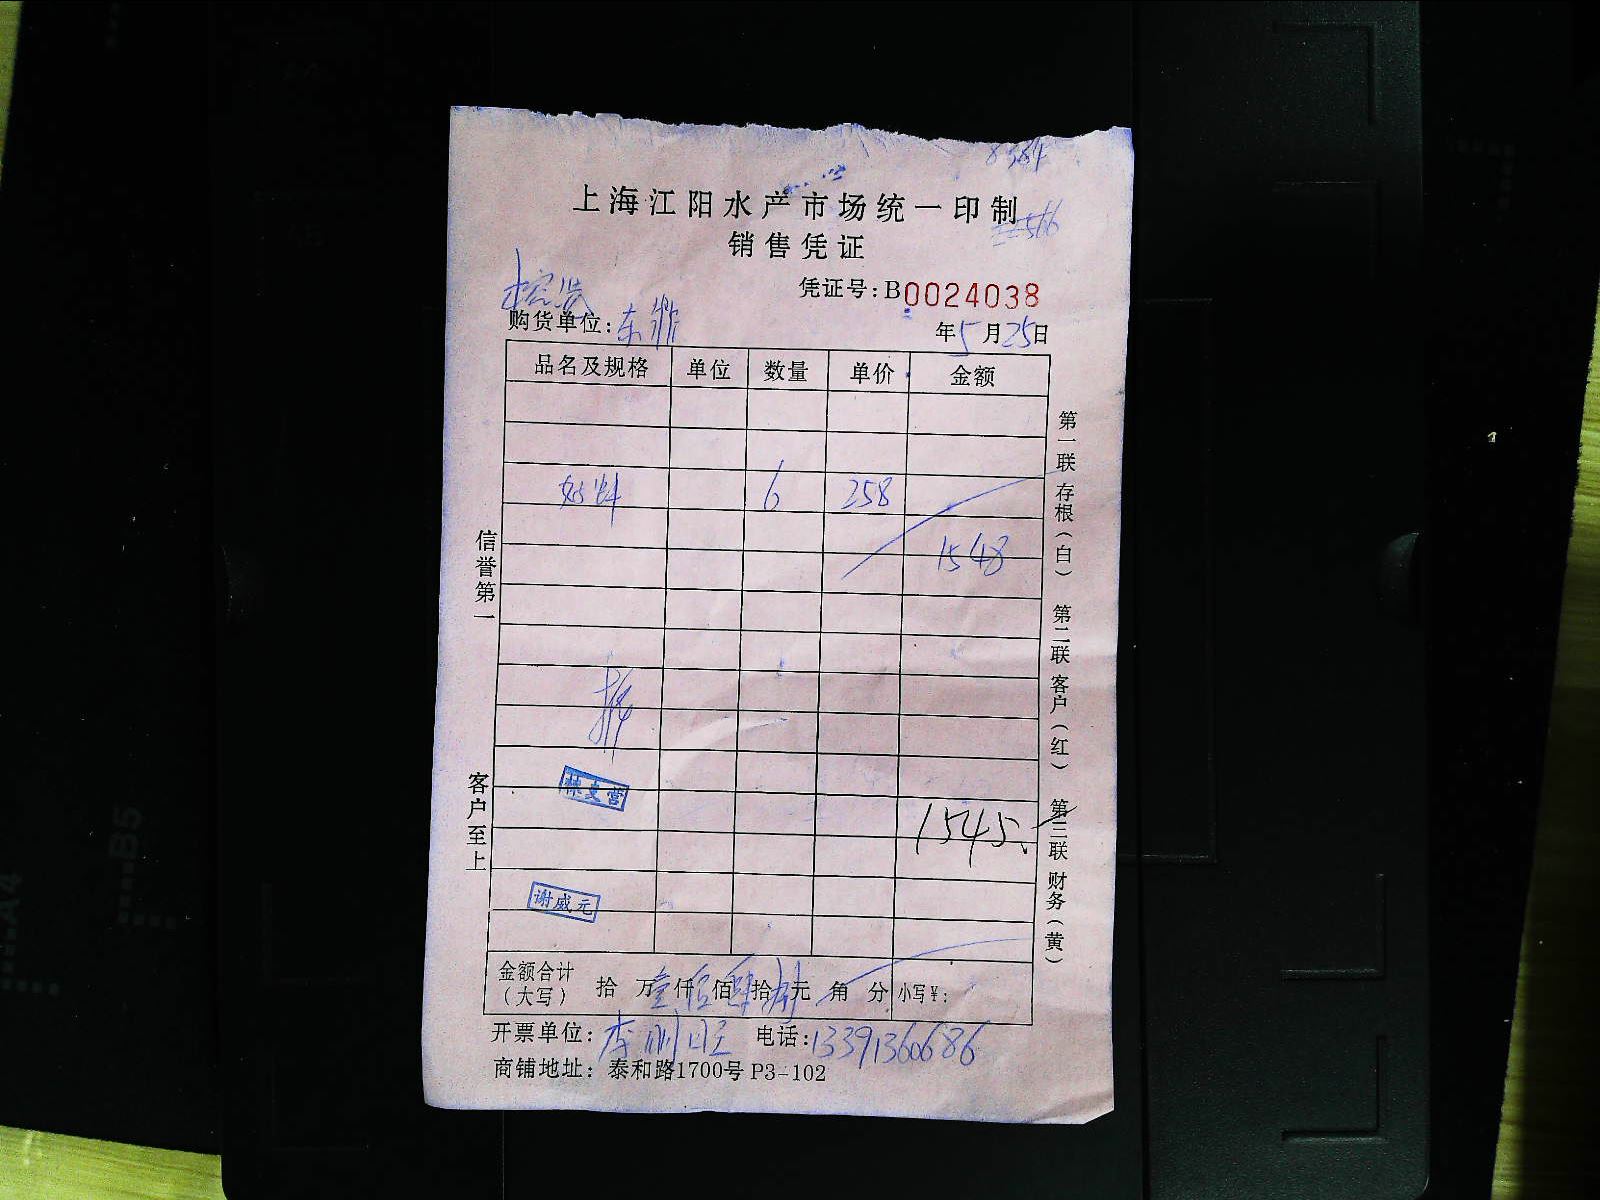 上海江阳水产市场统一印制
566
销售凭证
凭证号:B0024038
购货单位:东
年5月25日
品名及规格 单位 数量 单价 金额
6 258
1548
1545
谢威元
金额合计(大写) 拾 万壹仟伍佰肆拾 元 角 分 小写¥:
开票单位:李刚旺 电话:13391360686
商铺地址: 泰和路1700号 P3-102
信誉第一
客户至上
第一联 存根(白) 第二联 客户(红) 第三联 财务(黄)